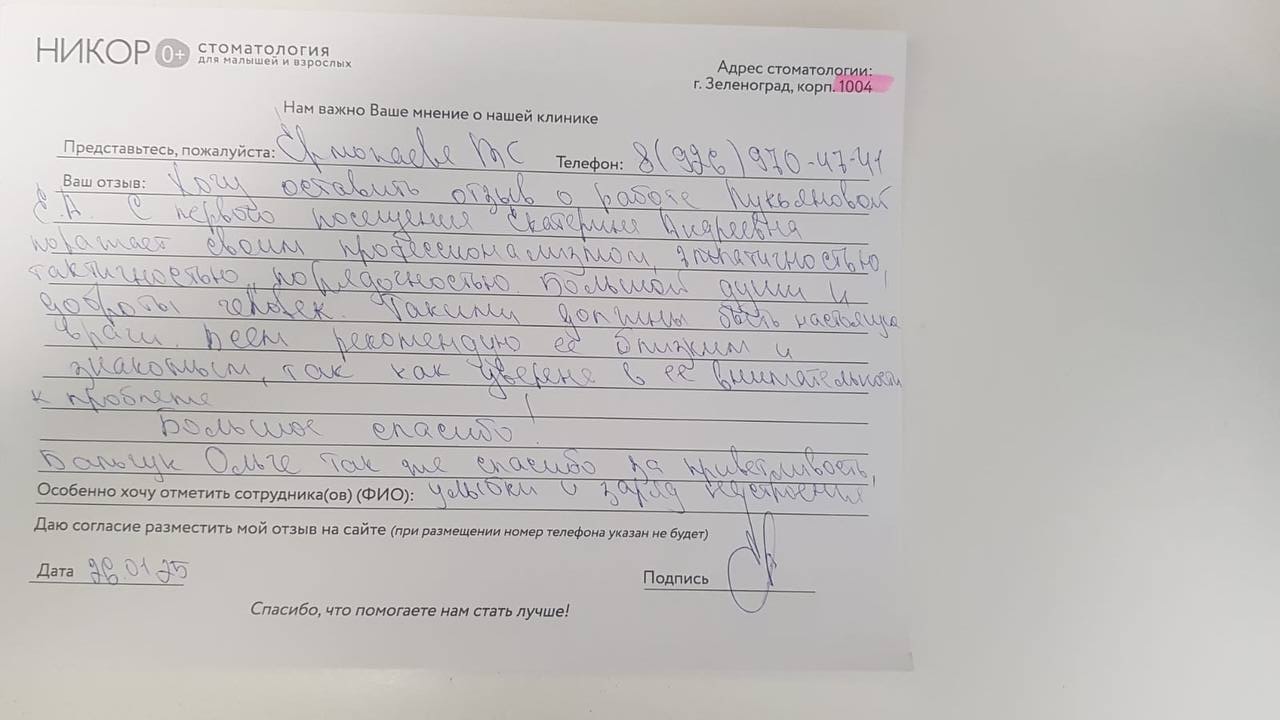 НИКОР 0+ СТОМАТОЛОГИЯ
ДЛЯ МАЛЫШЕЙ И ВЗРОСЛЫХ
Адрес стоматологии:
г. Зеленоград, корп. 1004
Нам важно Ваше мнение о нашей клинике
Представьтесь, пожалуйста: Ермолаева Телефон: 8(996)970-47-41
Ваш отзыв: Хочу оставить отзыв о работе Лукьяновой
Е.А. С первого посещения Екатерина Андреевна
поражает своим профессионализмом, эмпатичностью,
тактичностью, порядочностью. Большой души и
доброты человек. Такими должны быть настоящие
врачи. Всем рекомендую её близким и
знакомым, так как уверена в её внимательности
к проблеме!
Большое спасибо.
Ольге так же спасибо за приветливость,
Особенно хочу отметить сотрудника(ов) (ФИО): улыбки и заряд настроения
Даю согласие разместить мой отзыв на сайте (при размещении номер телефона указан не будет)
Дата 26.01.25 Подпись
Спасибо, что помогаете нам стать лучше!